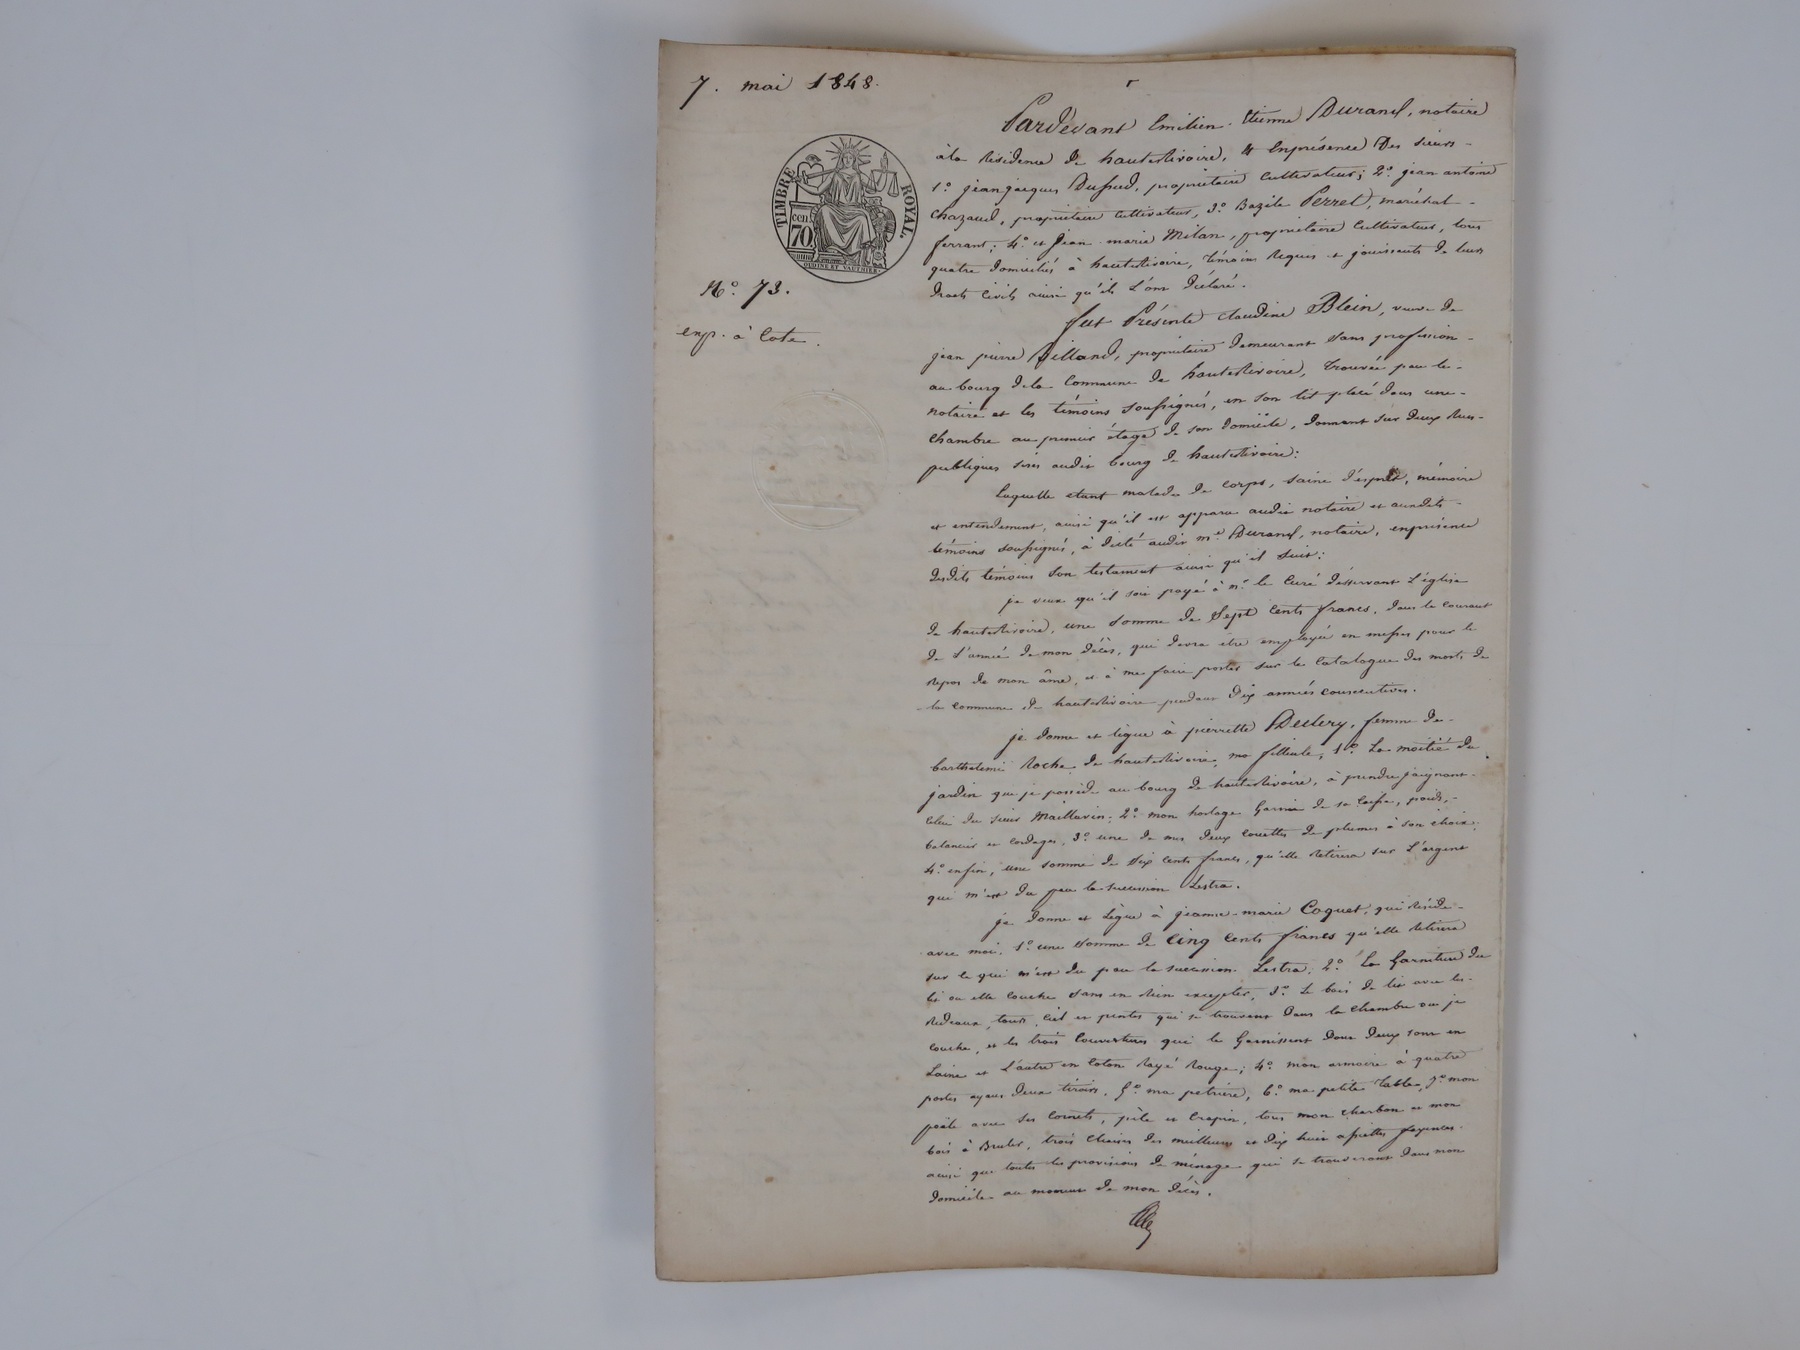 7. mai 1848.
TIMBRE ROYAL.
cen
70
OUDINÉ ET VAUTHIER.
N.° 73.
exp. à Cote.
Pardevant Emilien Etienne Durand, notaire
à la Résidence de hauterivoire, et enprésence Des sieurs
1.° jean jacques Dussud, propriétaire Cultivateur; 2.° jean antoine
Chazaud, propriétaire Cultivateur, 3.° Bazile Perret, maréchal
ferrant; 4.° et Jean marie Milan, propriétaire Cultivateur, tous
quatre Domiciliés à hauterivoire, témoins Requis et jouissants de leurs
Droits Civils ainsi qu'ils l'ont Déclaré.
fut Présente Claudine Blein, veuve de
jean pierre Villand, propriétaire demeurant sans profession
au bourg dela Commune de hauterivoire, trouvée par le
notaire et les témoins soussignés, en son lit placé dans une
Chambre au premier étage de son domicile, donnant sur deux Rues
publiques sises audit bourg de hauterivoire:
Laquelle etant malade de corps, saine d'esprit, mémoire
et entendement, ainsi qu'il est apparu audit notaire et auxdits
témoins soussignés, à dicté audit m.e Durand, notaire, enprésence
desdits témoins son testament ainsi qu'il suit:
je veux qu'il soit payé à m.r le Curé desservant L'église
de hauterivoire, une somme de Sept Cents francs, dans le courant
de l'année de mon décès, qui devra être employée en messes pour le
Repos de mon âme, et à me faire porter sur le Catalogue des morts de
la Commune de hauterivoire pendant dix années consecutives.
je donne et lègue à pierrette Declery, femme de
barthelemi Roche de hauterivoire, ma filleule, 1.° La moitié du
jardin que je possède au bourg de hauterivoire, à prendre joignant
Celui du sieur Maillavin; 2.° mon horloge garnie de sa Caisse, poids,
balancier et Cordages, 3.° une de mes deux Couettes de plumes à son choix;
4.° enfin, une somme de Six Cents francs, qu'elle Retirera sur L'argent
qui m'est du par la succession Lestra.
je donne et Lègue à jeanne-marie Coquet, qui Réside
avec moi, 1.° une somme de Cinq Cents francs qu'elle Retirera
sur ce qui m'est du par la succession Lestra; 2.° La Garniture du
lit ou elle Couche sans en Rien excepter, 3.° Le bois de lit avec les
Rideaux, tours, Ciel et pentes qui se trouvent dans la Chambre ou je
Couche, et les trois Couvertures qui le Garnissent dont deux sont en
Laine et L'autre en Coton Rayé Rouge; 4.° mon armoire à quatre
portes ayant deux tiroirs, 5.° ma petrière, 6.° ma petite table, 7.° mon
poële avec ses Cornets, pèle et Crapin, tous mon Charbon et mon
bois à Bruler, trois Chaises des meilleures et dix huit assiettes fayence
ainsi que toutes les provisions de ménage qui se trouveront dans mon
Domicile au moment de mon décès.